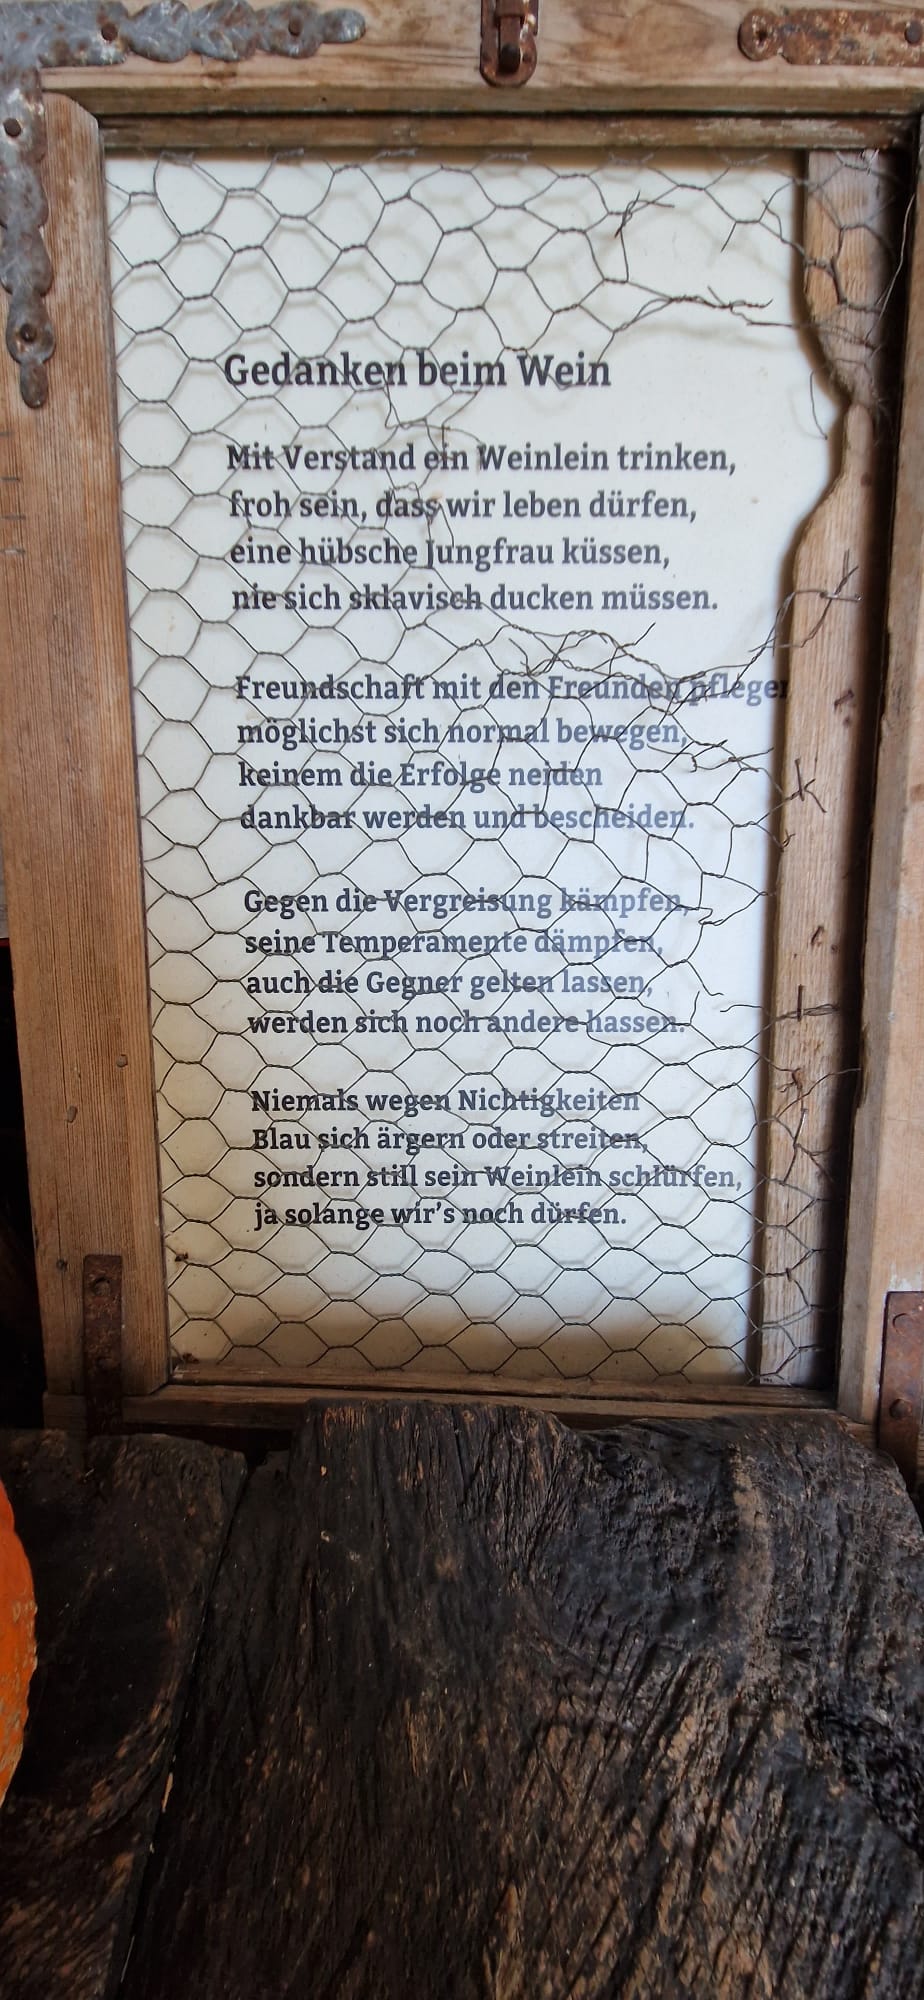 Gedanken beim Wein
Mit Verstand ein Weinlein trinken,
froh sein, dass wir leben dürfen,
eine hübsche Jungfrau küssen,
nie sich sklavisch ducken müssen.
Freundschaft mit den Freunden pflegen
möglichst sich normal bewegen,
keinem die Erfolge neiden
dankbar werden und bescheiden.
Gegen die Vergreisung kämpfen,
seine Temperamente dämpfen,
auch die Gegner gelten lassen,
werden sich noch andere hassen.
Niemals wegen Nichtigkeiten
Blau sich ärgern oder streiten,
sondern still sein Weinlein schlürfen,
ja solange wir's noch dürfen.